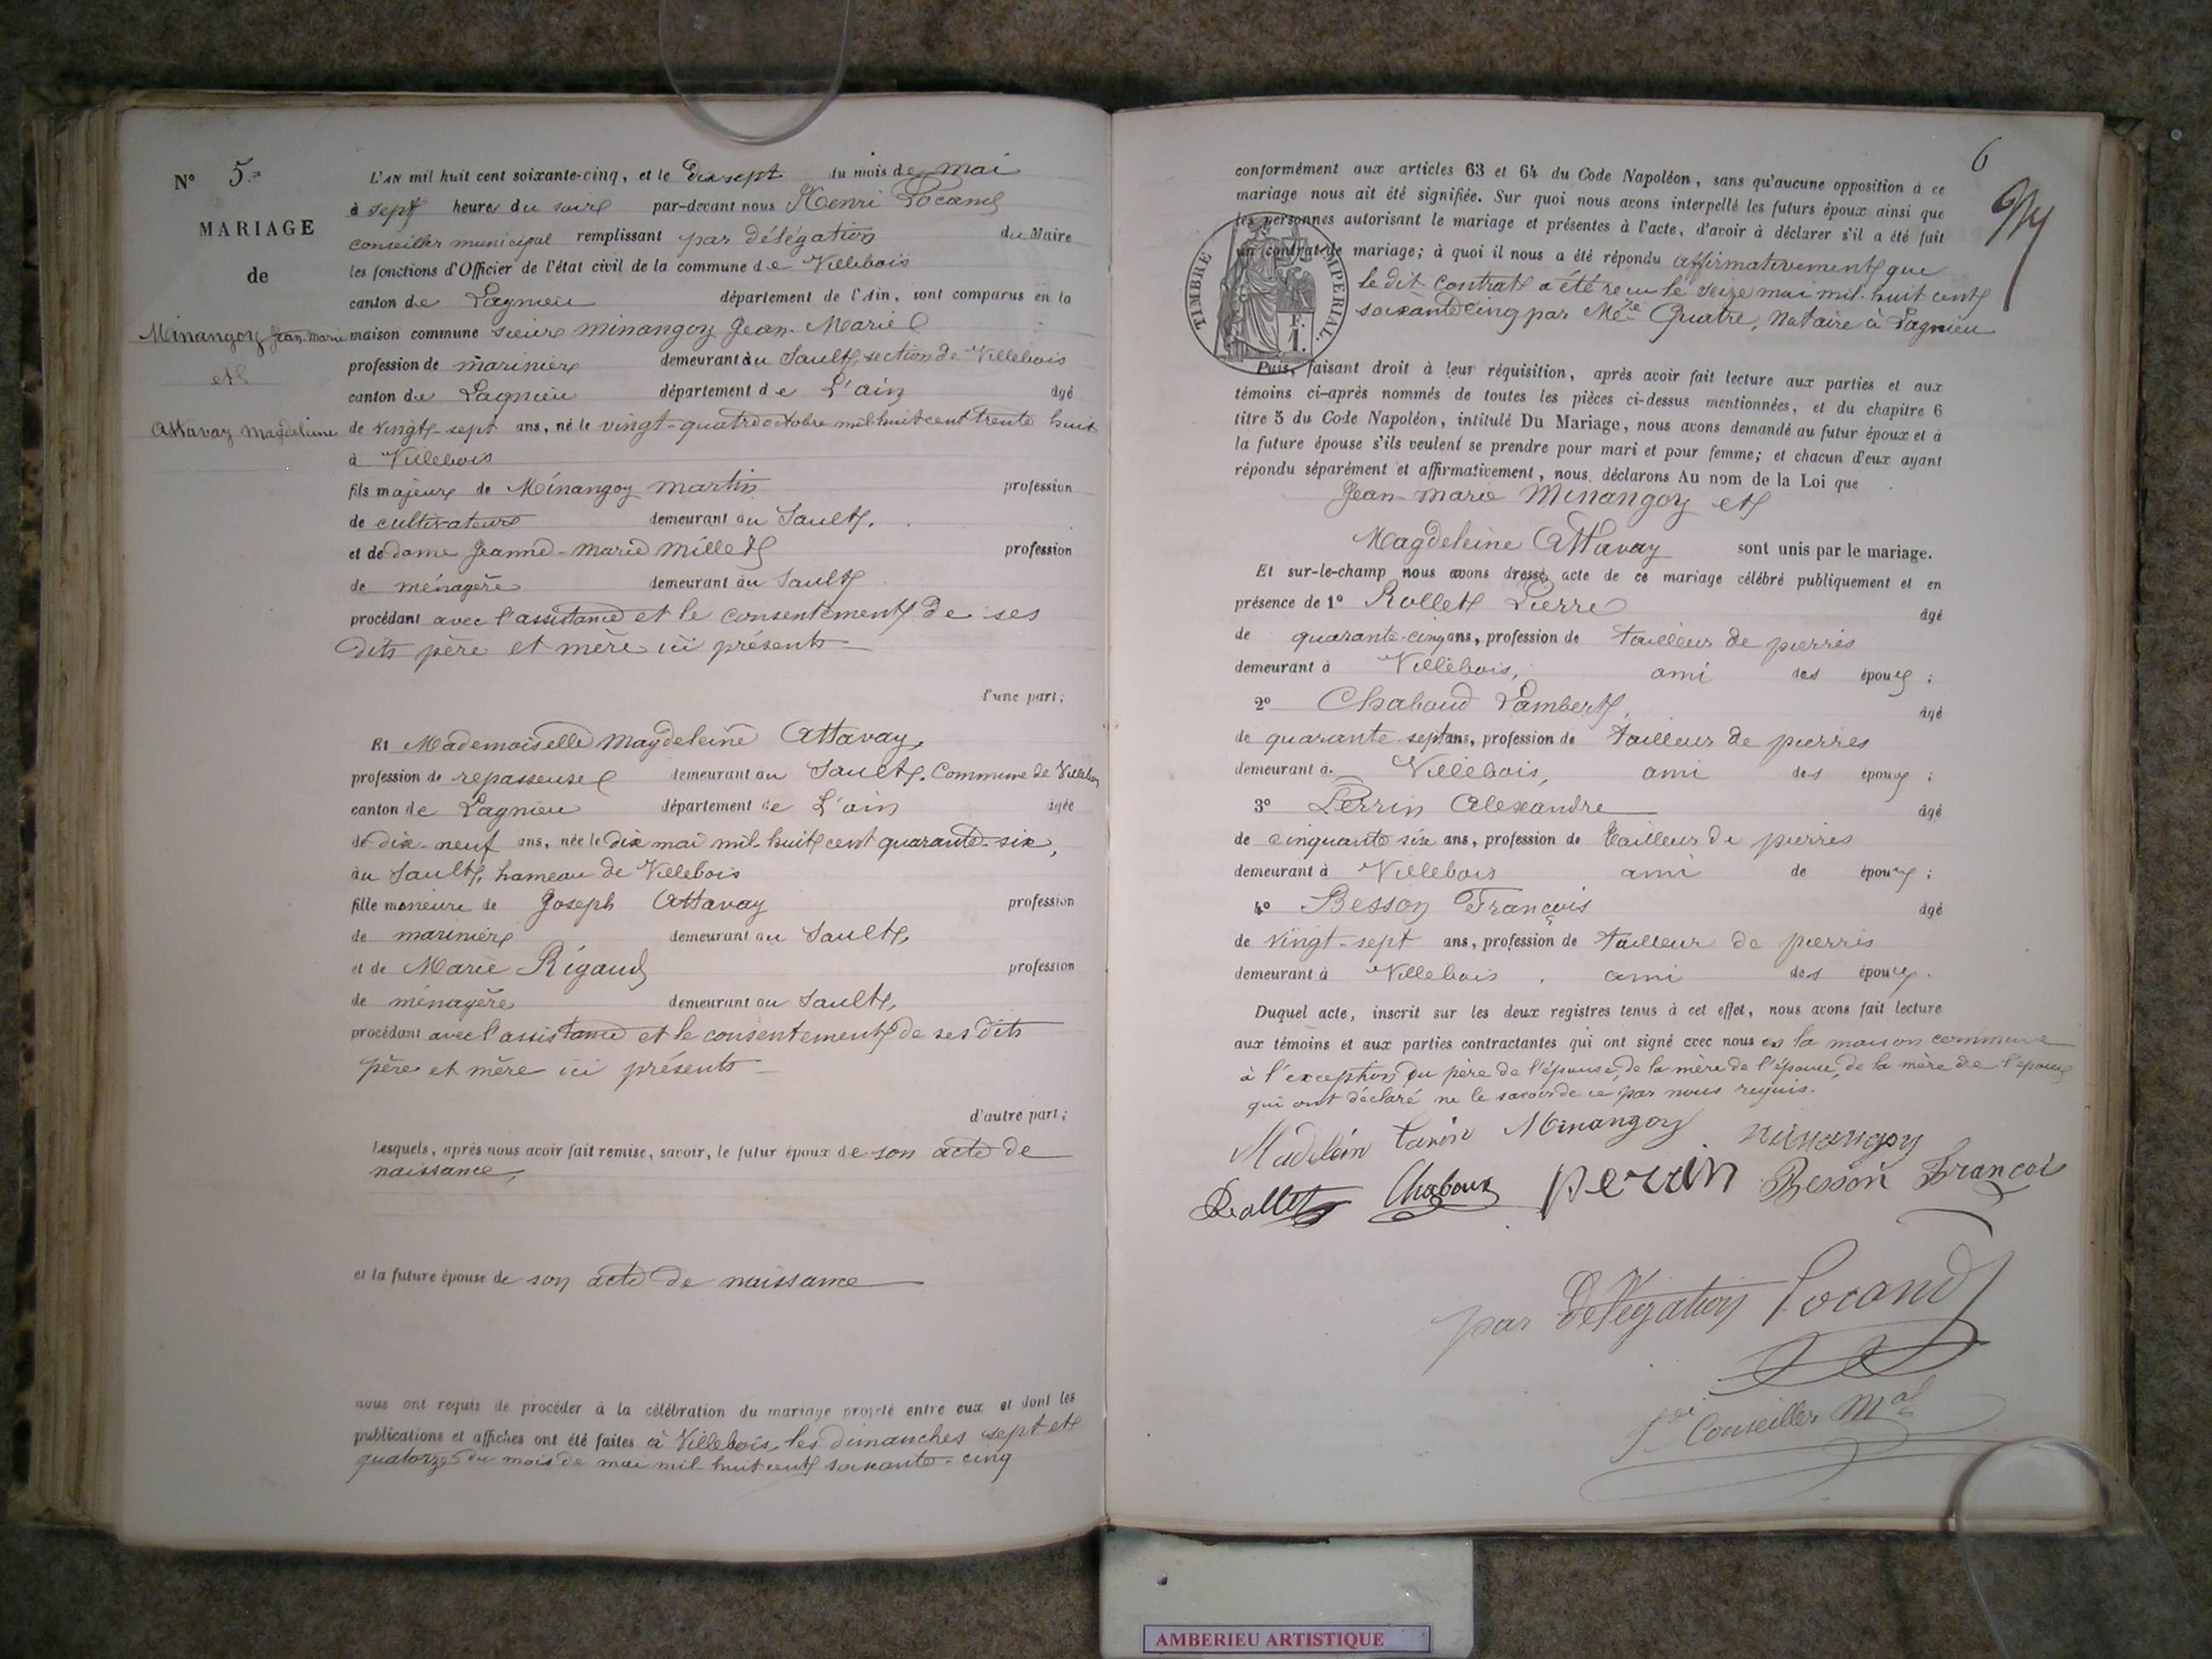 N° 5.
MARIAGE
de
Minangoy Jean-Marie
et
Attavay Magdeleine
L'AN mil huit cent soixante-cinq, et le dix sept du mois de mai
à sept heures du soir par-devant nous Henri Locand
conseiller municipal remplissant par délégation du Maire
les fonctions d'Officier de l'état civil de la commune de Villebois
canton de Lagnieu département de l'Ain, sont comparus en la
maison commune sieur Minangoy Jean-Marie
profession de marinier demeurant au Sault, section de Villebois
canton de Lagnieu département de L'ain âgé
de vingt-sept ans, né le vingt-quatre octobre mil huit cent trente huit
à Villebois
fils majeur de Minangoy Martin profession
de cultivateur demeurant au Sault.
et de dame Jeanne-Marie Millet profession
de ménagère demeurant au Sault
procédant avec l'assistance et le consentement de ses
dits père et mère ici présents
d'une part;
Et Mademoiselle Magdeleine Attavay,
profession de repasseuse demeurant au Sault, Commune de Villebois
canton de Lagnieu département de L'ain âgée
de dix-neuf ans, née le dix mai mil-huit cent quarante-six,
au Sault, hameau de Villebois
fille mineure de Joseph Attavay profession
de marinier demeurant au Sault,
et de Marie Rigaud profession
de ménagère demeurant au Sault,
procédant avec l'assistance et le consentement de ses dits
père et mère ici présents
d'autre part;
Lesquels, après nous avoir fait remise, savoir, le futur époux de son acte de
naissance,
et la future épouse de son acte de naissance
nous ont requis de procéder à la célébration du mariage projeté entre eux et dont les
publications et affiches ont été faites à Villebois, les dimanches sept et
quatorze du mois de mai mil-huit cent soixante-cinq
6
conformément aux articles 63 et 64 du Code Napoléon, sans qu'aucune opposition à ce
mariage nous ait été signifiée. Sur quoi nous avons interpellé les futurs époux ainsi que
les personnes autorisant le mariage et présentes à l'acte, d'avoir à déclarer s'il a été fait
un contrat de mariage; à quoi il nous a été répondu affirmativement que
le dit contrat a été reçu le seize mai mil-huit cent
soixante cinq par Me Quatre, Notaire à Lagnieu
TIMBRE IMPERIAL.
F.
1.
Puis, faisant droit à leur réquisition, après avoir fait lecture aux parties et aux
témoins ci-après nommés de toutes les pièces ci-dessus mentionnées, et du chapitre 6
titre 5 du Code Napoléon, intitulé Du Mariage, nous avons demandé au futur époux et à
la future épouse s'ils veulent se prendre pour mari et pour femme; et chacun d'eux ayant
répondu séparément et affirmativement, nous déclarons Au nom de la Loi que
Jean-Marie Minangoy et
Magdeleine Attavay sont unis par le mariage.
Et sur-le-champ nous avons dressé acte de ce mariage célébré publiquement et en
présence de 1° Rollet Pierre âgé
de quarante-cinq ans, profession de tailleur de pierres
demeurant à Villebois, ami des époux ;
2° Chaboud Lambert, âgé
de quarante-sept ans, profession de tailleur de pierres
demeurant à Villebois, ami des époux ;
3° Perrin Alexandre âgé
de cinquante six ans, profession de tailleur de pierres
demeurant à Villebois ami de époux ;
4° Besson François âgé
de vingt-sept ans, profession de tailleur de pierres
demeurant à Villebois . ami des époux.
Duquel acte, inscrit sur les deux registres tenus à cet effet, nous avons fait lecture
aux témoins et aux parties contractantes qui ont signé avec nous en la maison commune
à l'exception du père de l'épouse, de la mère de l'épouse, de la mère de l'époux
qui ont déclaré ne le savoir de ce par nous requis.
Minangoy Minangoy
Rollet Chaboux perrin Besson François
par délégation Locand
Conseiller Mal
AMBERIEU ARTISTIQUE